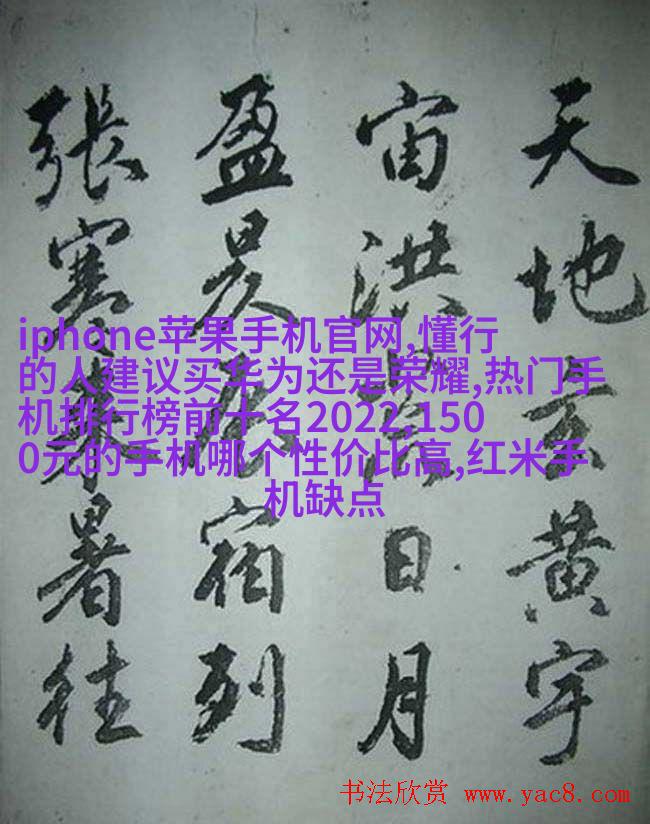 天地玄黄宇
宙洪荒日月
盈昃辰宿列
張寒来暑往
iphone苹果手机官网,懂行
的人建议买华为还是荣耀,热门手
机排行榜前十名2022,150
0元的手机哪个性价比高,红米手
机缺点
书法欣赏 www.yac8.com